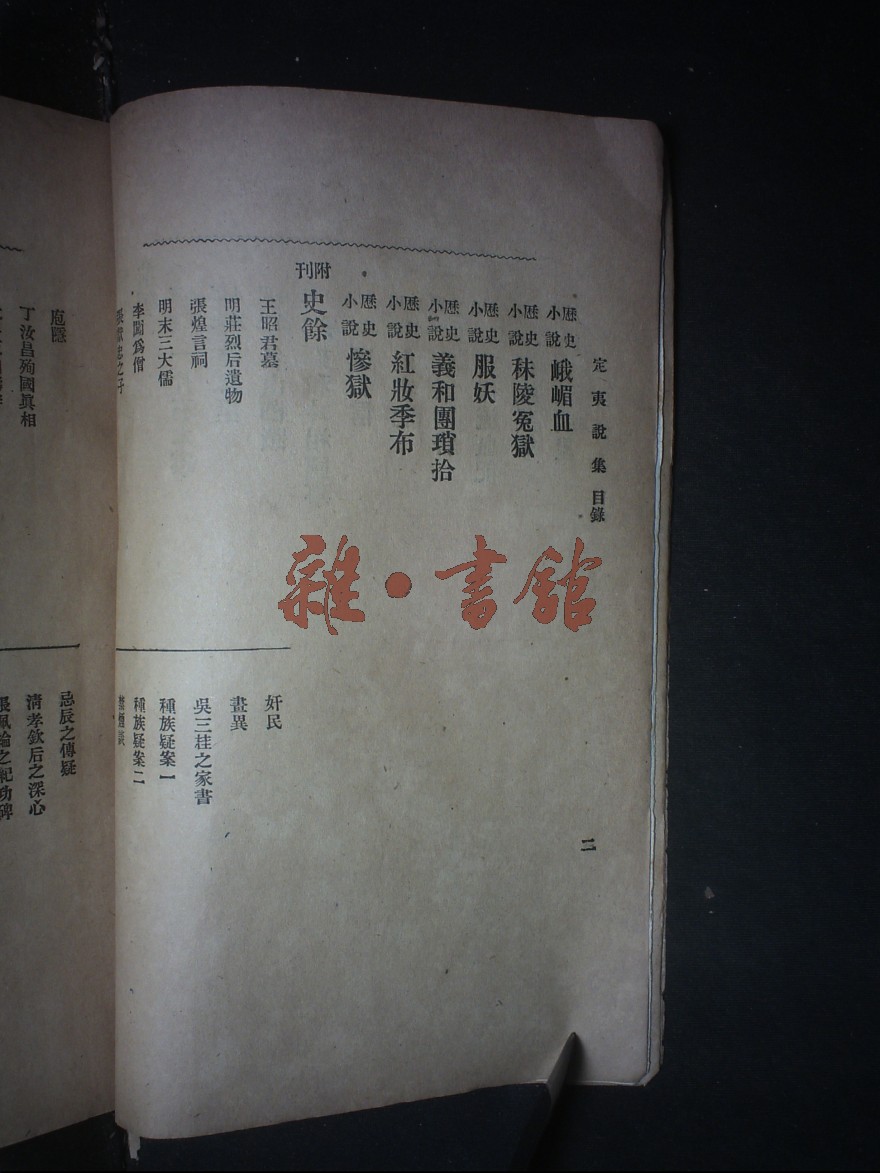 定夷說集 目錄
二
歷史小說 峨嵋血
歷史小說 秣陵冤獄
歷史小說 服妖
歷史小說 義和團瑣拾
歷史小說 紅妝季布
歷史小說 慘獄
附刊 史餘
王昭君墓
奸民
明莊烈后遺物
畫異
張煌言祠
吳三桂之家書
明末三大儒
種族疑案一
李闖爲僧
種族疑案二
庖隱
忌辰之傳疑
丁汝昌殉國眞相
清孝欽后之深心
雜·書館